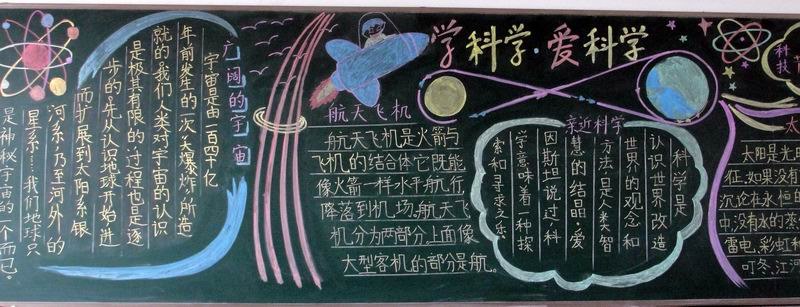 学科学·爱科学
广阔的宇宙
宇宙是由一百四十亿
年前发生的一次大爆炸所造
就的我们人类对宇宙的认识
是极其有限的过程也是逐
步的先从认识地球开始进
而扩展到太阳系银
河系乃至河外的
星系……我们地球只
是神秘宇宙的一个而已。
航天飞机
航天飞机是火箭与
飞机的结合体它既能
像火箭一样水平航行
降落到机场。航天飞
机分为两部分。上面像
大型客机的部分是航。
亲近科学
科学是
认识世界改造
世界的观念和
方法是人类智
慧的结晶。爱
因斯坦说过科
学意味着一种探
索和寻求之乐。
科技
太
太阳是光
征.如果没有
沉沦在永恒的
中,没有水的蒸
雷电,彩虹和
叮冬,江河